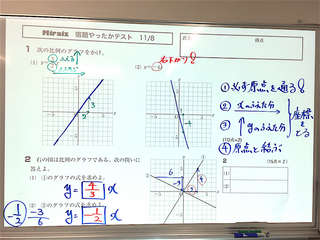 Miraiz 宿題やったかテスト 11/8
氏名
得点
1 次の比例のグラフをかけ。
(1)
(2)
右下がり
3
2
-4
① 必ず原点を通る!
② xのふえた分
③ ↑yのふえた分
座標をとる
(10点×2)
④ 原点と結ぶ
2 右の図は比例のグラフである。次の問いに答えよ。
(1) ①のグラフの式を求めよ。
y = 4/3 x
(2) ②のグラフの式を求めよ。
-1/2 -3/6 y = -1/2 x
6
-3
2 (15点×2)
(1)
(2)